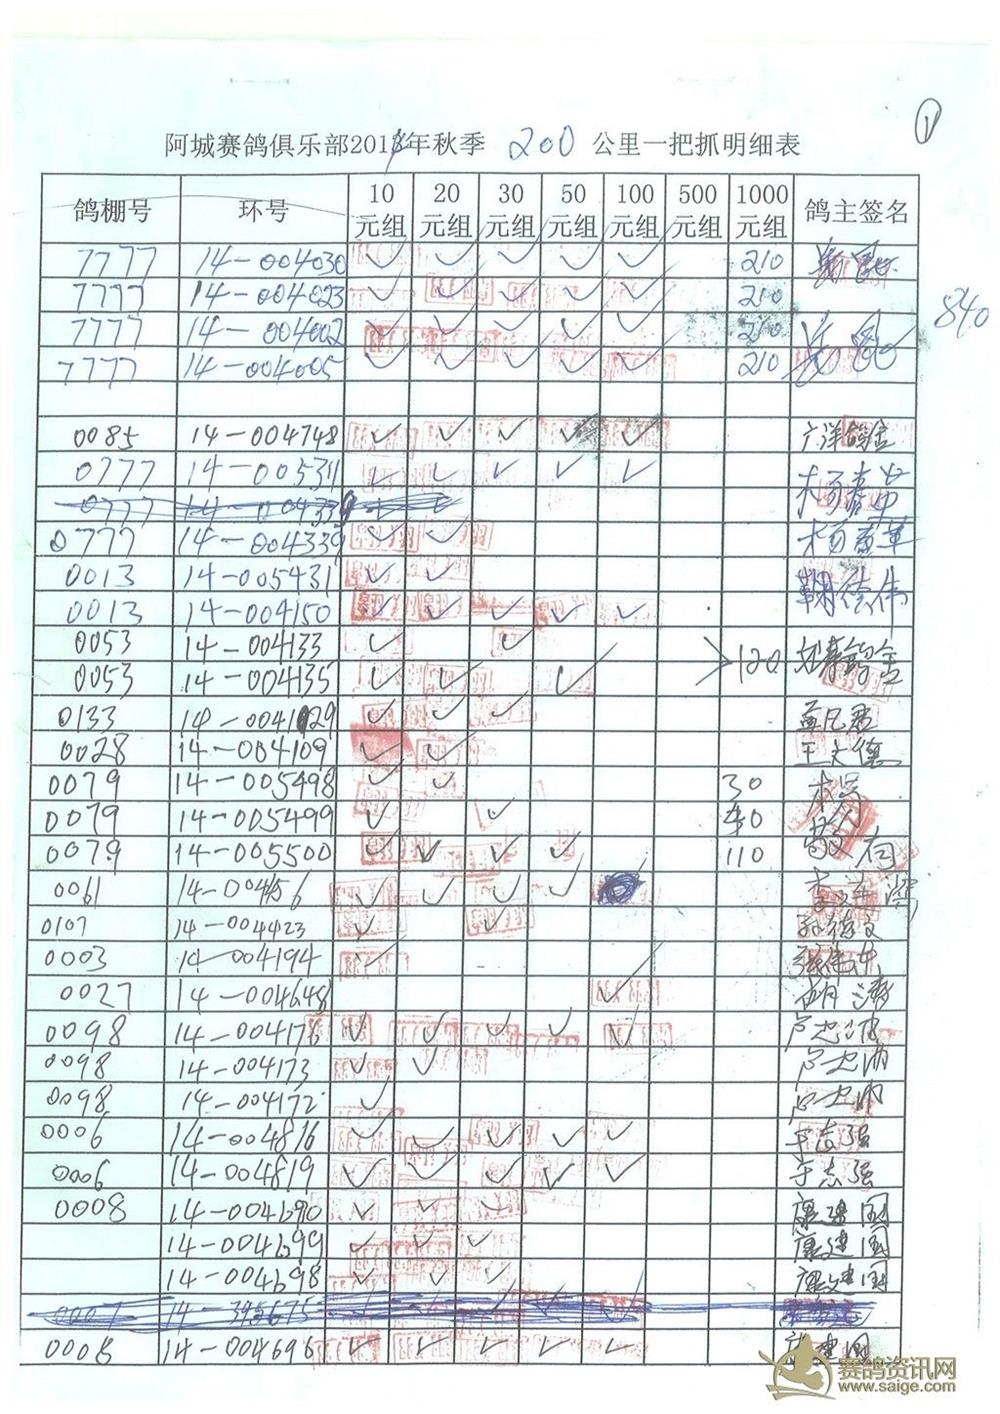 ①
阿城赛鸽俱乐部2014年秋季 200 公里一把抓明细表
鸽棚号 环号 10元组 20元组 30元组 50元组 100元组 500元组 1000元组 鸽主签名
7777 14-004030 ✓ ✓ ✓ ✓ ✓ 210
7777 14-004023 ✓ ✓ ✓ ✓ ✓ 210
840
7777 14-004002 ✓ ✓ ✓ ✓ ✓ 210
7777 14-004005 ✓ ✓ ✓ ✓ ✓ 210
0085 14-004748 ✓ ✓ ✓ ✓ ✓ 广洋鸽舍
0777 14-005311 ✓ ✓ ✓ ✓ ✓ 杨春革
0777 14-004339
0777 14-004339 ✓ ✓ 杨春革
0013 14-005431 ✓ ✓ 鞠德伟
0013 14-004150 ✓ ✓ ✓ ✓ ✓
0053 14-004133 ✓ ✓ 120 鸽舍
0053 14-004135 ✓ ✓ ✓
0133 14-004129 ✓ ✓ ✓
0028 14-004109 ✓ ✓ 王文德
0079 14-005498 ✓ ✓ 30
0079 14-005499 ✓ ✓ 40
0079 14-005500 ✓ ✓ ✓ ✓ 110
0061 14-004156 ✓ ✓ ✓ ✓ 李
0107 14-004423 ✓ ✓ 孙德文
0003 14-004194 ✓ 张伟东
0027 14-004648 ✓ 胡涛
0098 14-004176 ✓ ✓ ✓ ✓ ✓
0098 14-004173 ✓ ✓
0098 14-004172 ✓
0006 14-004816 ✓ ✓ ✓ ✓ ✓ 于志强
0006 14-004819 ✓ ✓ ✓ ✓ ✓ 于志强
0008 14-004690 ✓ ✓ ✓ 康建国
14-004699 ✓ ✓ ✓ 康建国
14-004698 ✓ ✓ ✓ 康建国
0007 14-395675
0008 14-004696 ✓ ✓ ✓ ✓ ✓ 康建国
赛鸽资讯网
www.saige.com